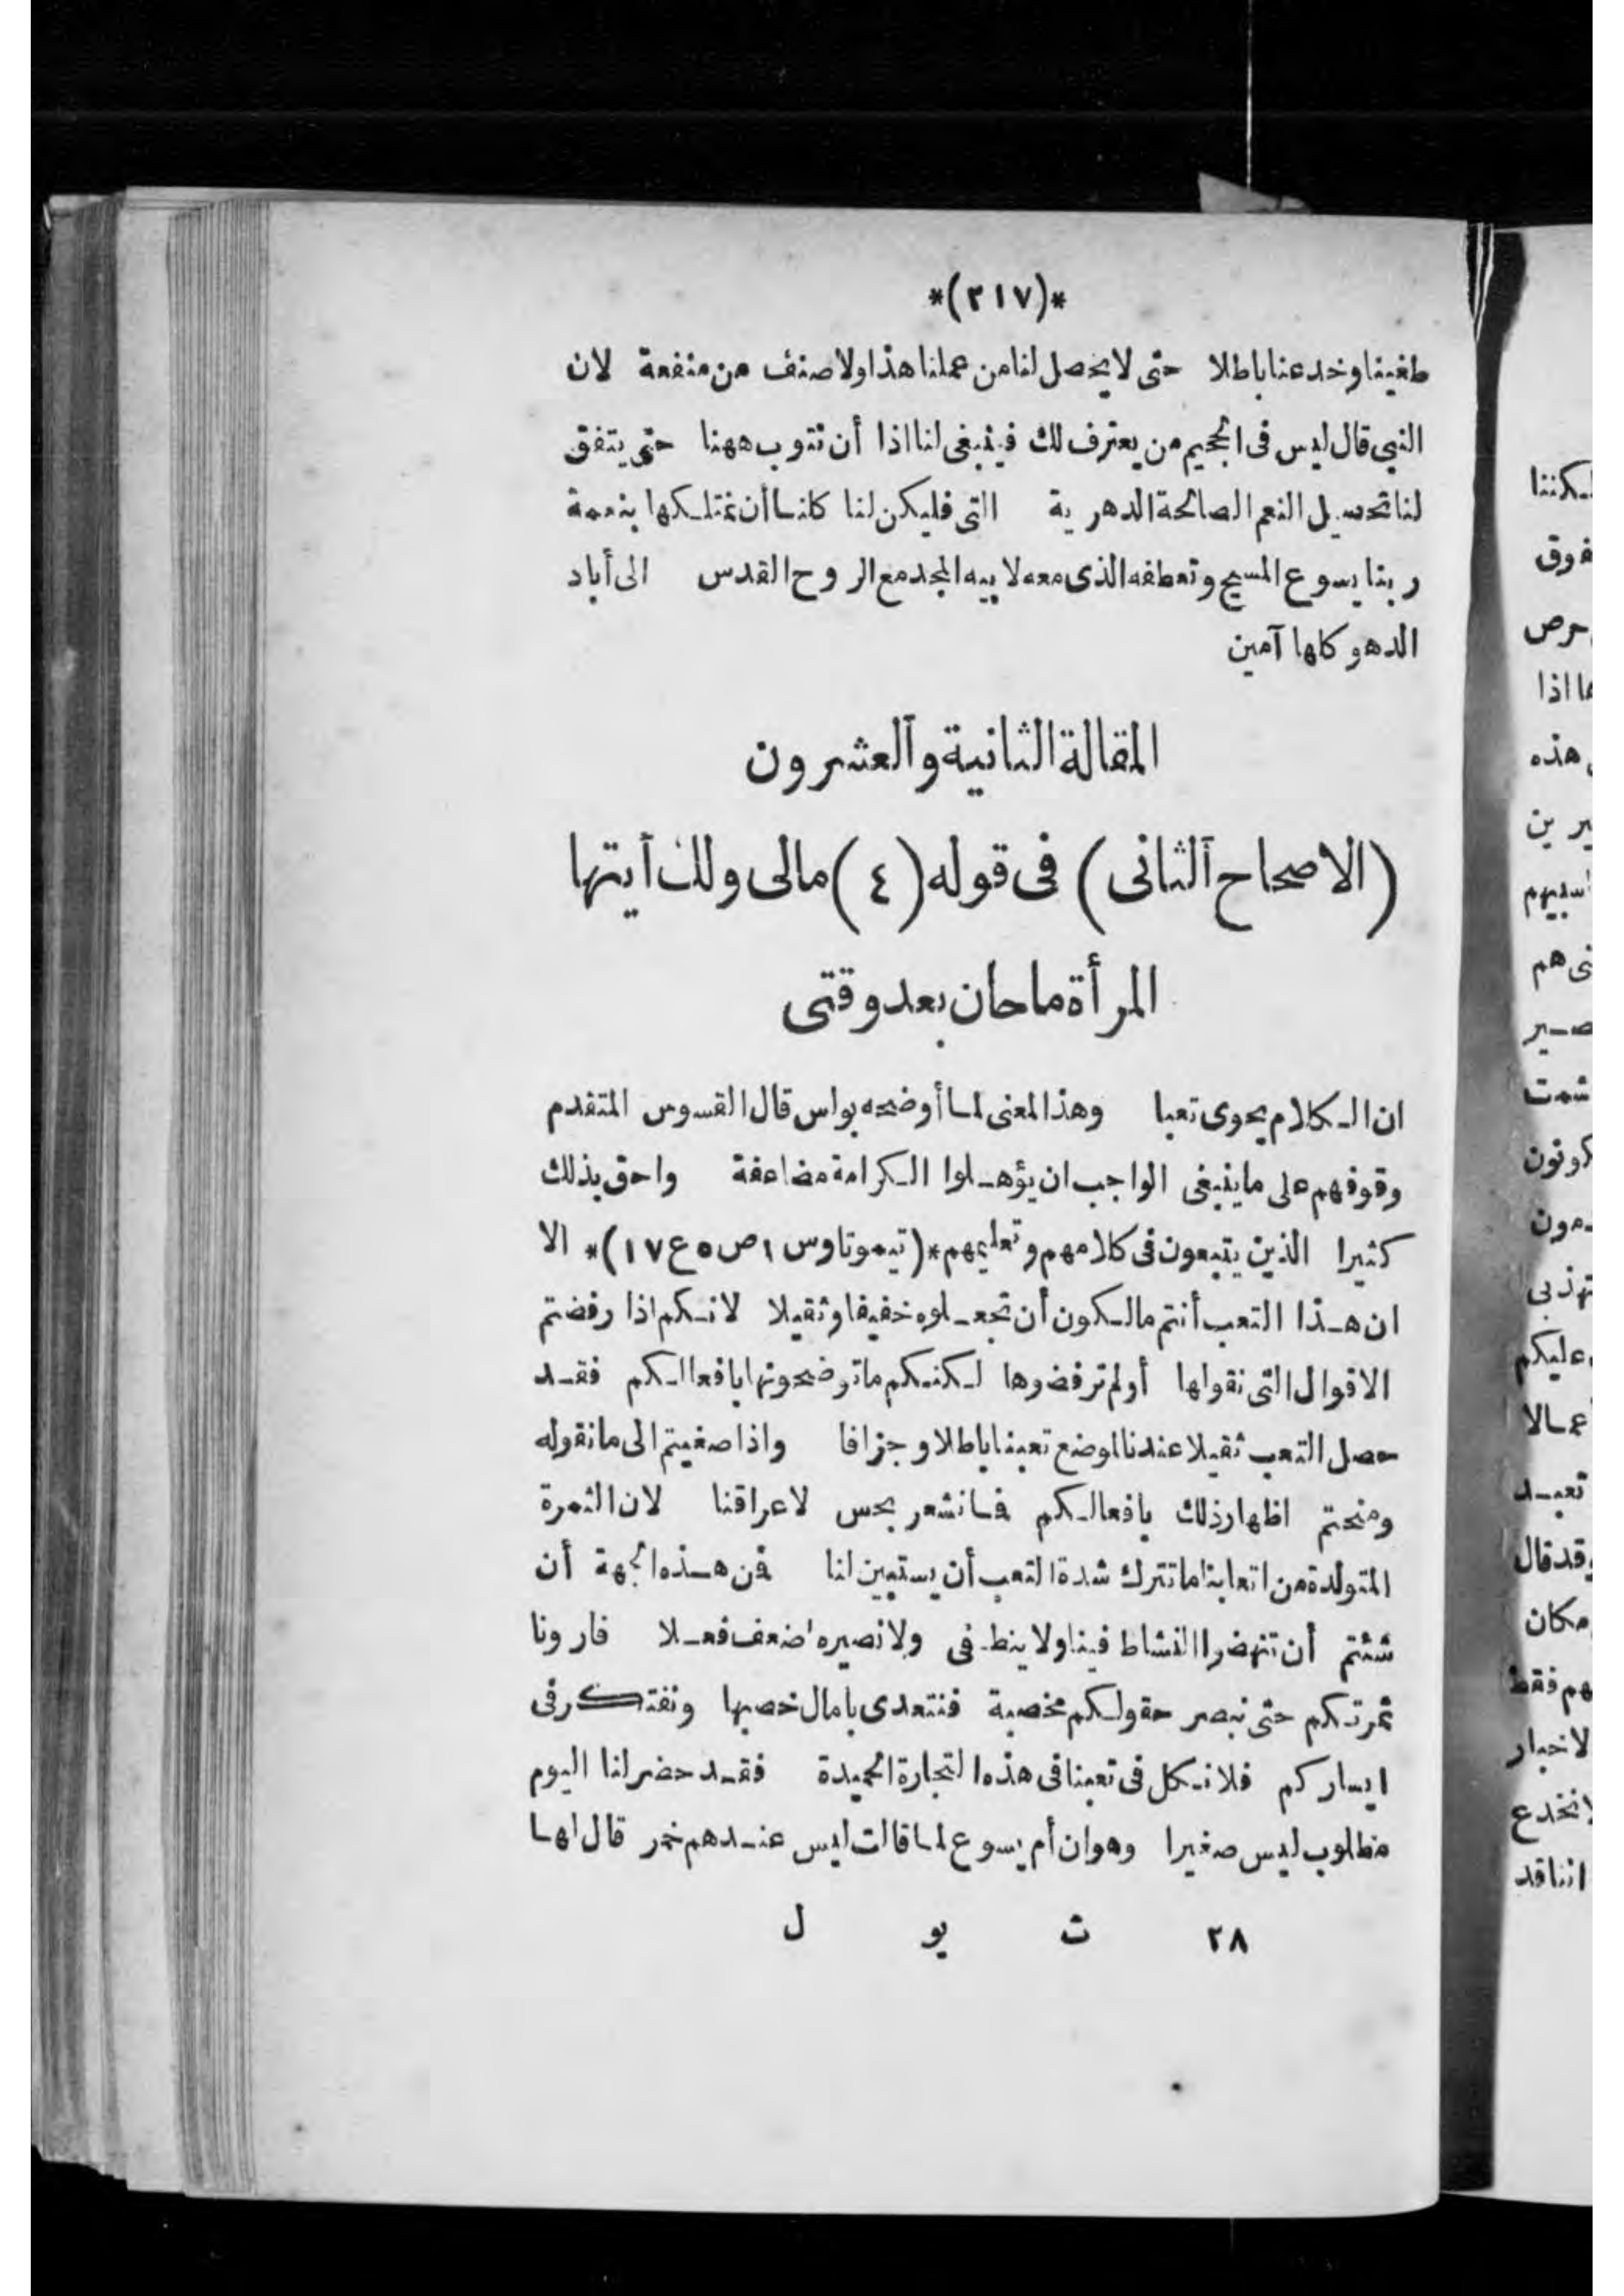 *(٢١٧)*
طغينا وخدعنا باطلا حتى لا يحصل لنا من عملنا هذا ولا صنف من منفعة لان
النبي قال ليس فى الجحيم من يعترف لك فينبغى لنا اذا أن نتوب ههنا حتى يتفق
لنا تحصيل النعم الصالحة الدهرية التى فليكن لنا كلنا أن نمتلكها بنعمة
ربنا يسوع المسيح وتعطفه الذى معه لابيه المجد مع الروح القدس الى أباد
الدهو كلها آمين
المقالة الثانية والعشرون
(الاصحاح الثانى) فى قوله (٤) مالى ولك أيتها
المرأة ما حان بعد وقتى
ان الكلام يحوى تعبا وهذا المعنى لما أوضحه بولس قال القسوس المتقدم
وقوفهم على ما ينبغى الواجب ان يؤهلوا الكرامة مضاعفة واحق بذلك
كثيرا الذين يتبعون فى كلامهم وتعليمهم *(تيموتاوس ١ ص ٥ ع ١٧)* الا
ان هذا التعب أنتم مالكون أن تجعلوه خفيفا وثقيلا لانكم اذا رفضتم
الاقوال التى نقولها أو لم ترفضوها لكنكم ما توضحونها بافعالكم فقد
حصل التعب ثقيلا عندنا لوضع تعبنا باطلا وجزافا واذا صغيتم الى ما نقوله
ومنحتم اظهار ذلك بافعالكم فما نشعر بحس لاعراقنا لان الثمرة
المتولدة من اتعابنا ما تترك شدة التعب أن يستبين لنا فمن هذه الجهة أن
شئتم أن تنهضوا النشاط فينا ولا ينطفى ولا نصيره اضعف فعلا فارونا
ثمرتكم حتى نبصر حقولكم مخصبة فنتعدى بامال خصبها ونفتكر فى
ايساركم فلا نكل فى تعبنا فى هذه التجارة الحميدة فقد حضر لنا اليوم
مطلوب ليس صغيرا وهو ان أم يسوع لما قالت ليس عندهم خمر قال لها
٢٨ ت يو ل